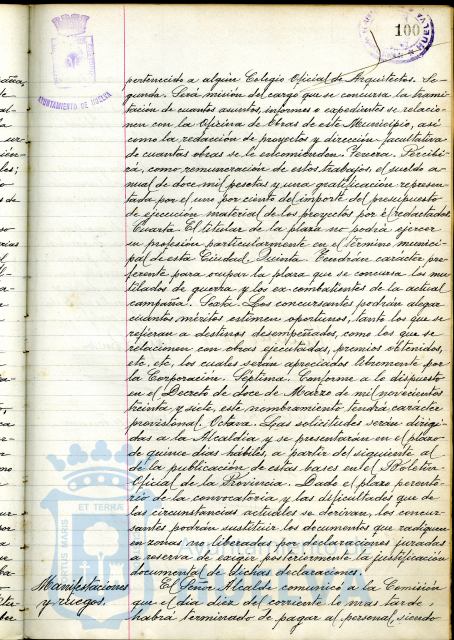 100
AYUNTAMIENTO DE HUELVA
pertenecido a algún Colegio Oficial de Arquitectos. Se-
gunda. Será misión del cargo que se concursa la trami-
tación de cuantos asuntos, informes o expedientes se relacio-
nen con la Oficina de Obras de este Municipio, así
como la redacción de proyectos y dirección facultativa
de cuantas obras se le encomienden. Tercera. Percibi-
rá, como remuneración de estos trabajos, el sueldo a-
nual de doce mil pesetas y una gratificación represen-
tada por el uno por ciento del importe del presupuesto
de ejecución material de los proyectos por él redactados.
Cuarta. El titular de la plaza no podrá ejercer
su profesión particularmente en el término munici-
pal de esta Ciudad. Quinta. Tendrán carácter pre-
ferente para ocupar la plaza que se concursa los mu-
tilados de guerra y los ex-combatientes de la actual
campaña. Sexta. Los concursantes podrán alegar
cuantos méritos estimen oportunos, tanto los que se
refieran a destinos desempeñados, como los que se
relacionen con obras ejecutadas, premios obtenidos,
etc, etc, los cuales serán apreciados libremente por
la Corporación. Séptima. Conforme a lo dispuesto
en el Decreto de doce de Marzo de mil novecientos
treinta y siete, este nombramiento tendrá carácter
provisional. Octava. Las solicitudes serán dirigi-
das a la Alcaldía y se presentarán en el plazo
de quince días hábiles, a partir del siguiente al
de la publicación de estas bases en el Boletín
Oficial de la Provincia. Dado el plazo perento-
rio de la convocatoria y las dificultades que de
las circunstancias actuales se derivan, los concur-
santes podrán sustituir los documentos que radiquen
en zonas no liberadas por declaraciones juradas
a reserva de exigir posteriormente la justificación
documental de dichas declaraciones.
Manifestaciones
y ruegos.
El Señor Alcalde comunicó a la Comisión
que el día diez del corriente lo mas tarde,
habrá terminado de pagar al personal, siendo